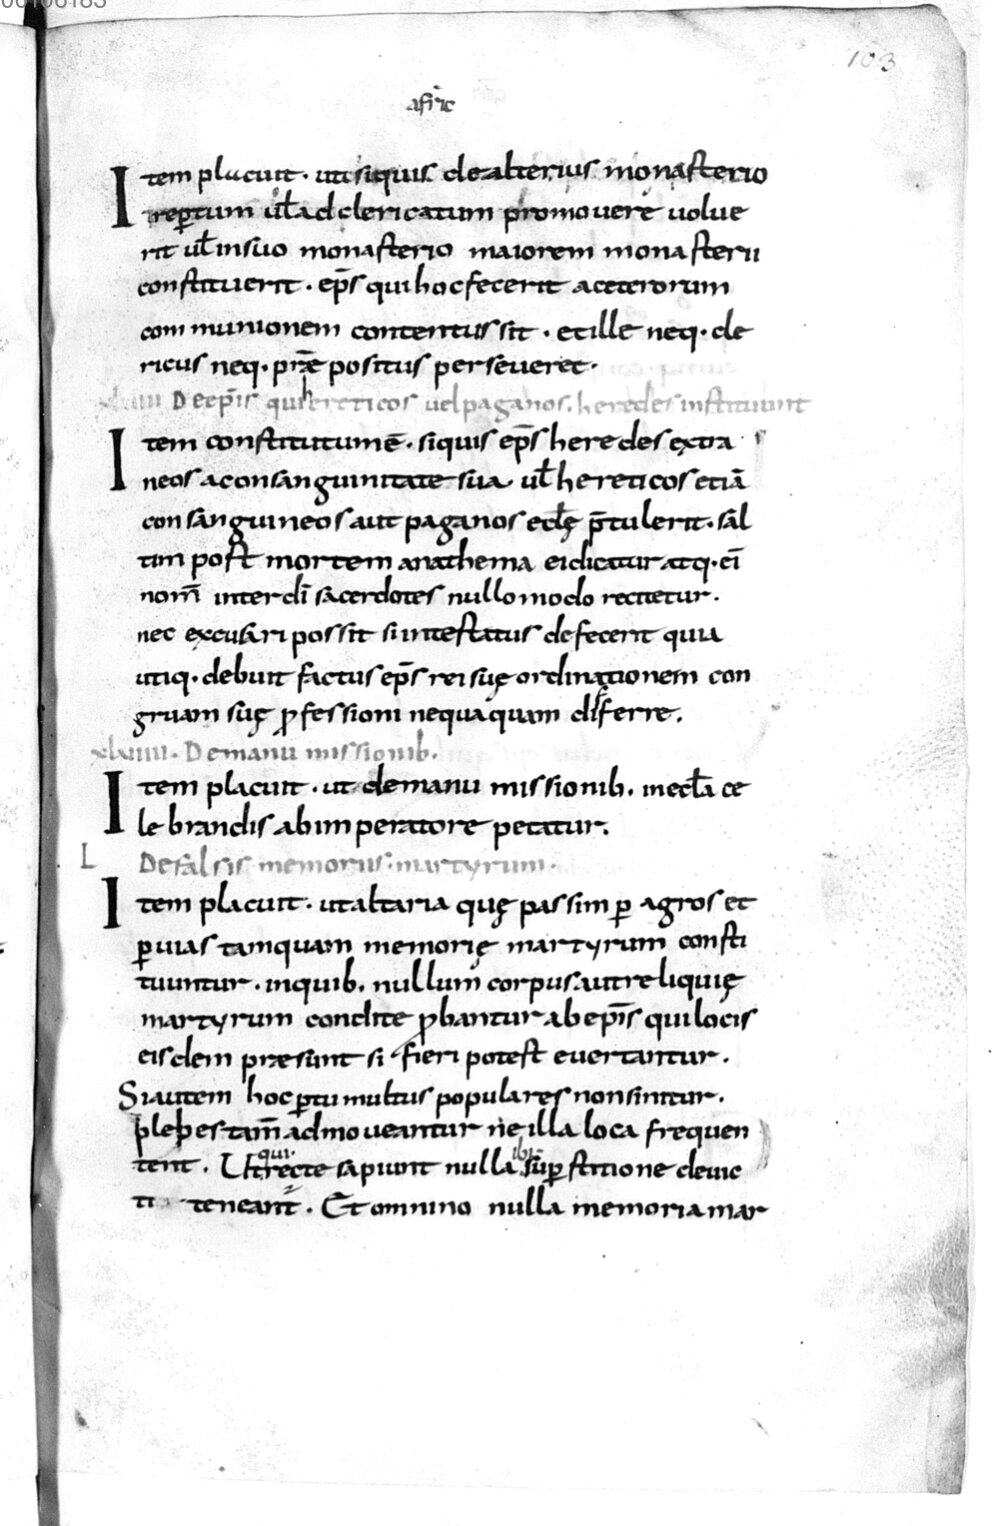 103
afric
Item placuit · ut siquis de alterius monasterio
repertum ut̄ ad clericatum promouere uolue
rit ut̄ in suo monasterio maiorem monasterii
constituerit · ep̄s qui hoc fecerit a ceterorum
communionem contentus sit · et ille neq · cle
ricus neq · prę̄positus perseueret ·
De ep̄is qui hereticos uel paganos · heredes instituunt
Item constitutum ē · siquis ep̄s heredes extra
neos a consanguinitate sua ut̄ hereticos etiā
consanguineos aut paganos ecl̄ę p̄tulerit · sal
tim post mortem anathema ei dicatur atq · ei
nom̄ inter dī sacerdotes nullo modo recitetur ·
nec excusari possit si intestatus defecerit quia
utiq · debuit factus ep̄s rei suę ordinationem con
gruam suę ꝓfessioni nequaquam differre .
xluiiii . De manu missionib .
Item placuit · ut de manu missionib . in ecl̄a ce
lebrandis ab imperatore petatur .
L De falsis memoriis martyrum .
Item placuit · ut altaria quę passim ꝑ agros et
ꝑ uias tamquam memorię martyrum consti
tuuntur · in quib . nullum corpus aut reliquię
martyrum condite ꝓbantur ab ep̄is qui locis
eisdem praesunt si fieri potest euertantur .
Si autem hoc ꝑ tumultus populares non sinitur .
plebes tam̄ admoueantur ne illa loca frequen
tent . Ut qui recte sapiunt nulla ibi suꝑstitione deuic
ti teneant̄ . Et omnino nulla memoria mar